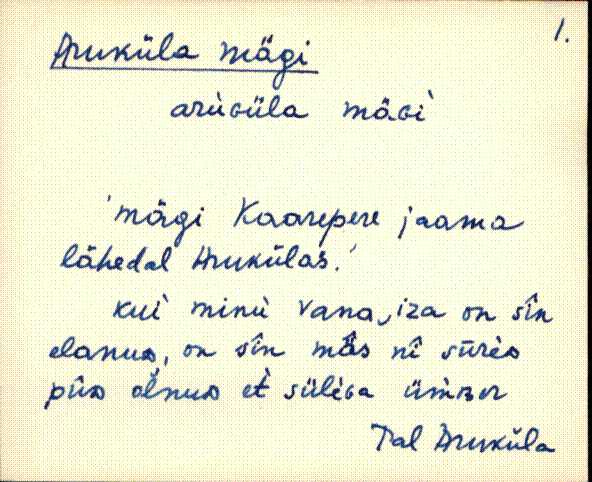 1.
Aruküla mägi
arùɢüla màɢi`
'mägi Kaarepere jaama
lähedal Arukülas.'
kui` minù vana‿iza on sîn
elanuᴅ, on sîn mä̂s nî sūrèᴅ
pûᴅ olnuᴅ et̀ sülèɢa ümʙer
Pal Aruküla